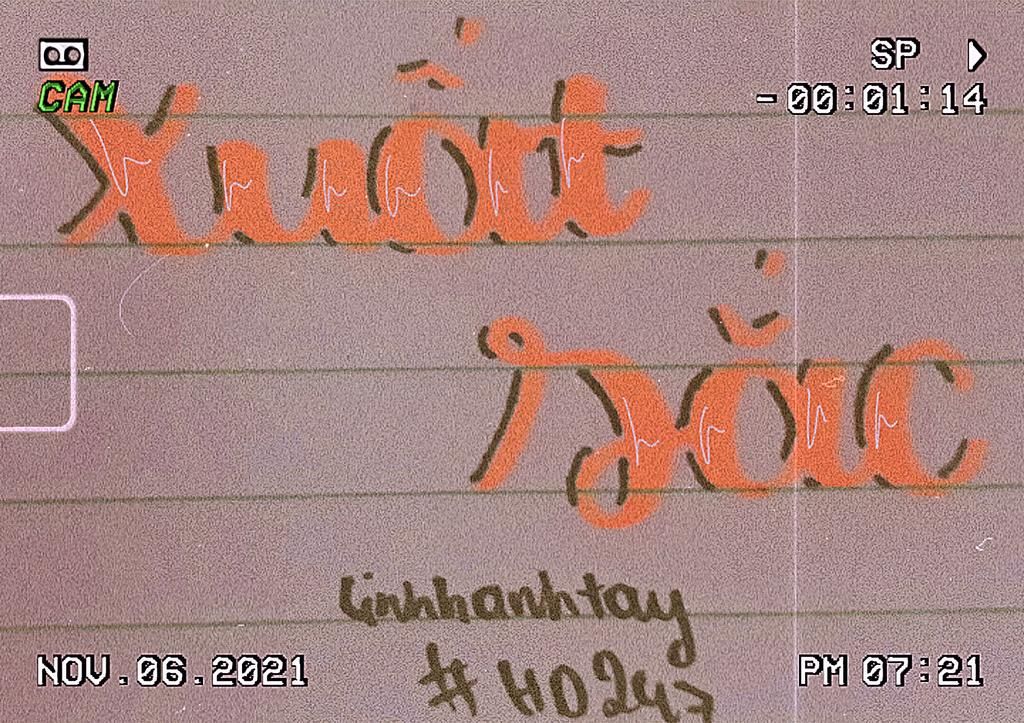 SP
CAM
-00:01:14
Xuất
sắc
Linhhanhtay
#HD247
NOV.06.2021
PM 07:21